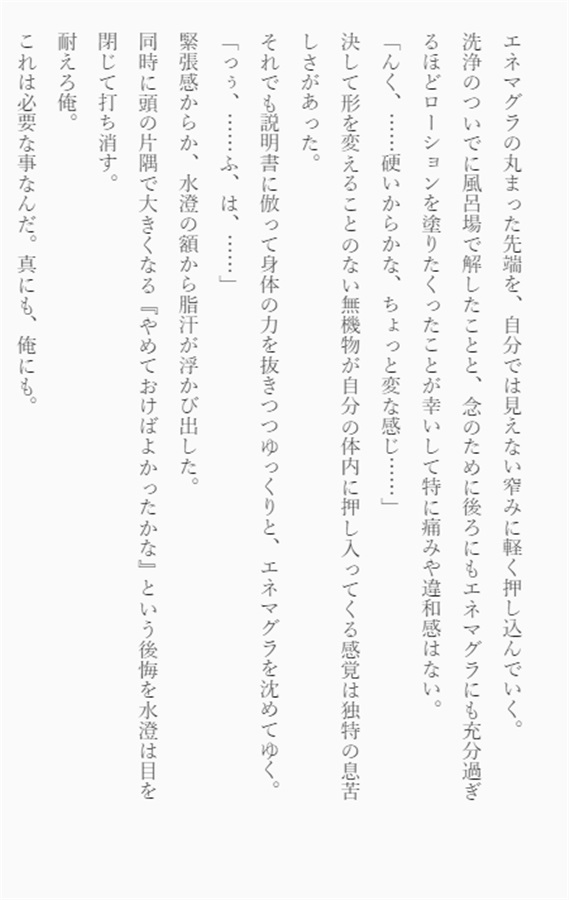 エネマグラの丸まった先端を、自分では見えない窄みに軽く押し込んでいく。
洗浄のついでに風呂場で解したことと、念のために後ろにもエネマグラにも充分過ぎ
るほどローションを塗りたくったことが幸いして特に痛みや違和感はない。
「んく、……硬いからかな、ちょっと変な感じ……」
決して形を変えることのない無機物が自分の体内に押し入ってくる感覚は独特の息苦
しさがあった。
それでも説明書に倣って身体の力を抜きつつゆっくりと、エネマグラを沈めてゆく。
「っぅ、……ふ、は、……」
緊張感からか、水澄の額から脂汗が浮かび出した。
同時に頭の片隅で大きくなる『やめておけばよかったかな』という後悔を水澄は目を
閉じて打ち消す。
耐えろ俺。
これは必要な事なんだ。真にも、俺にも。